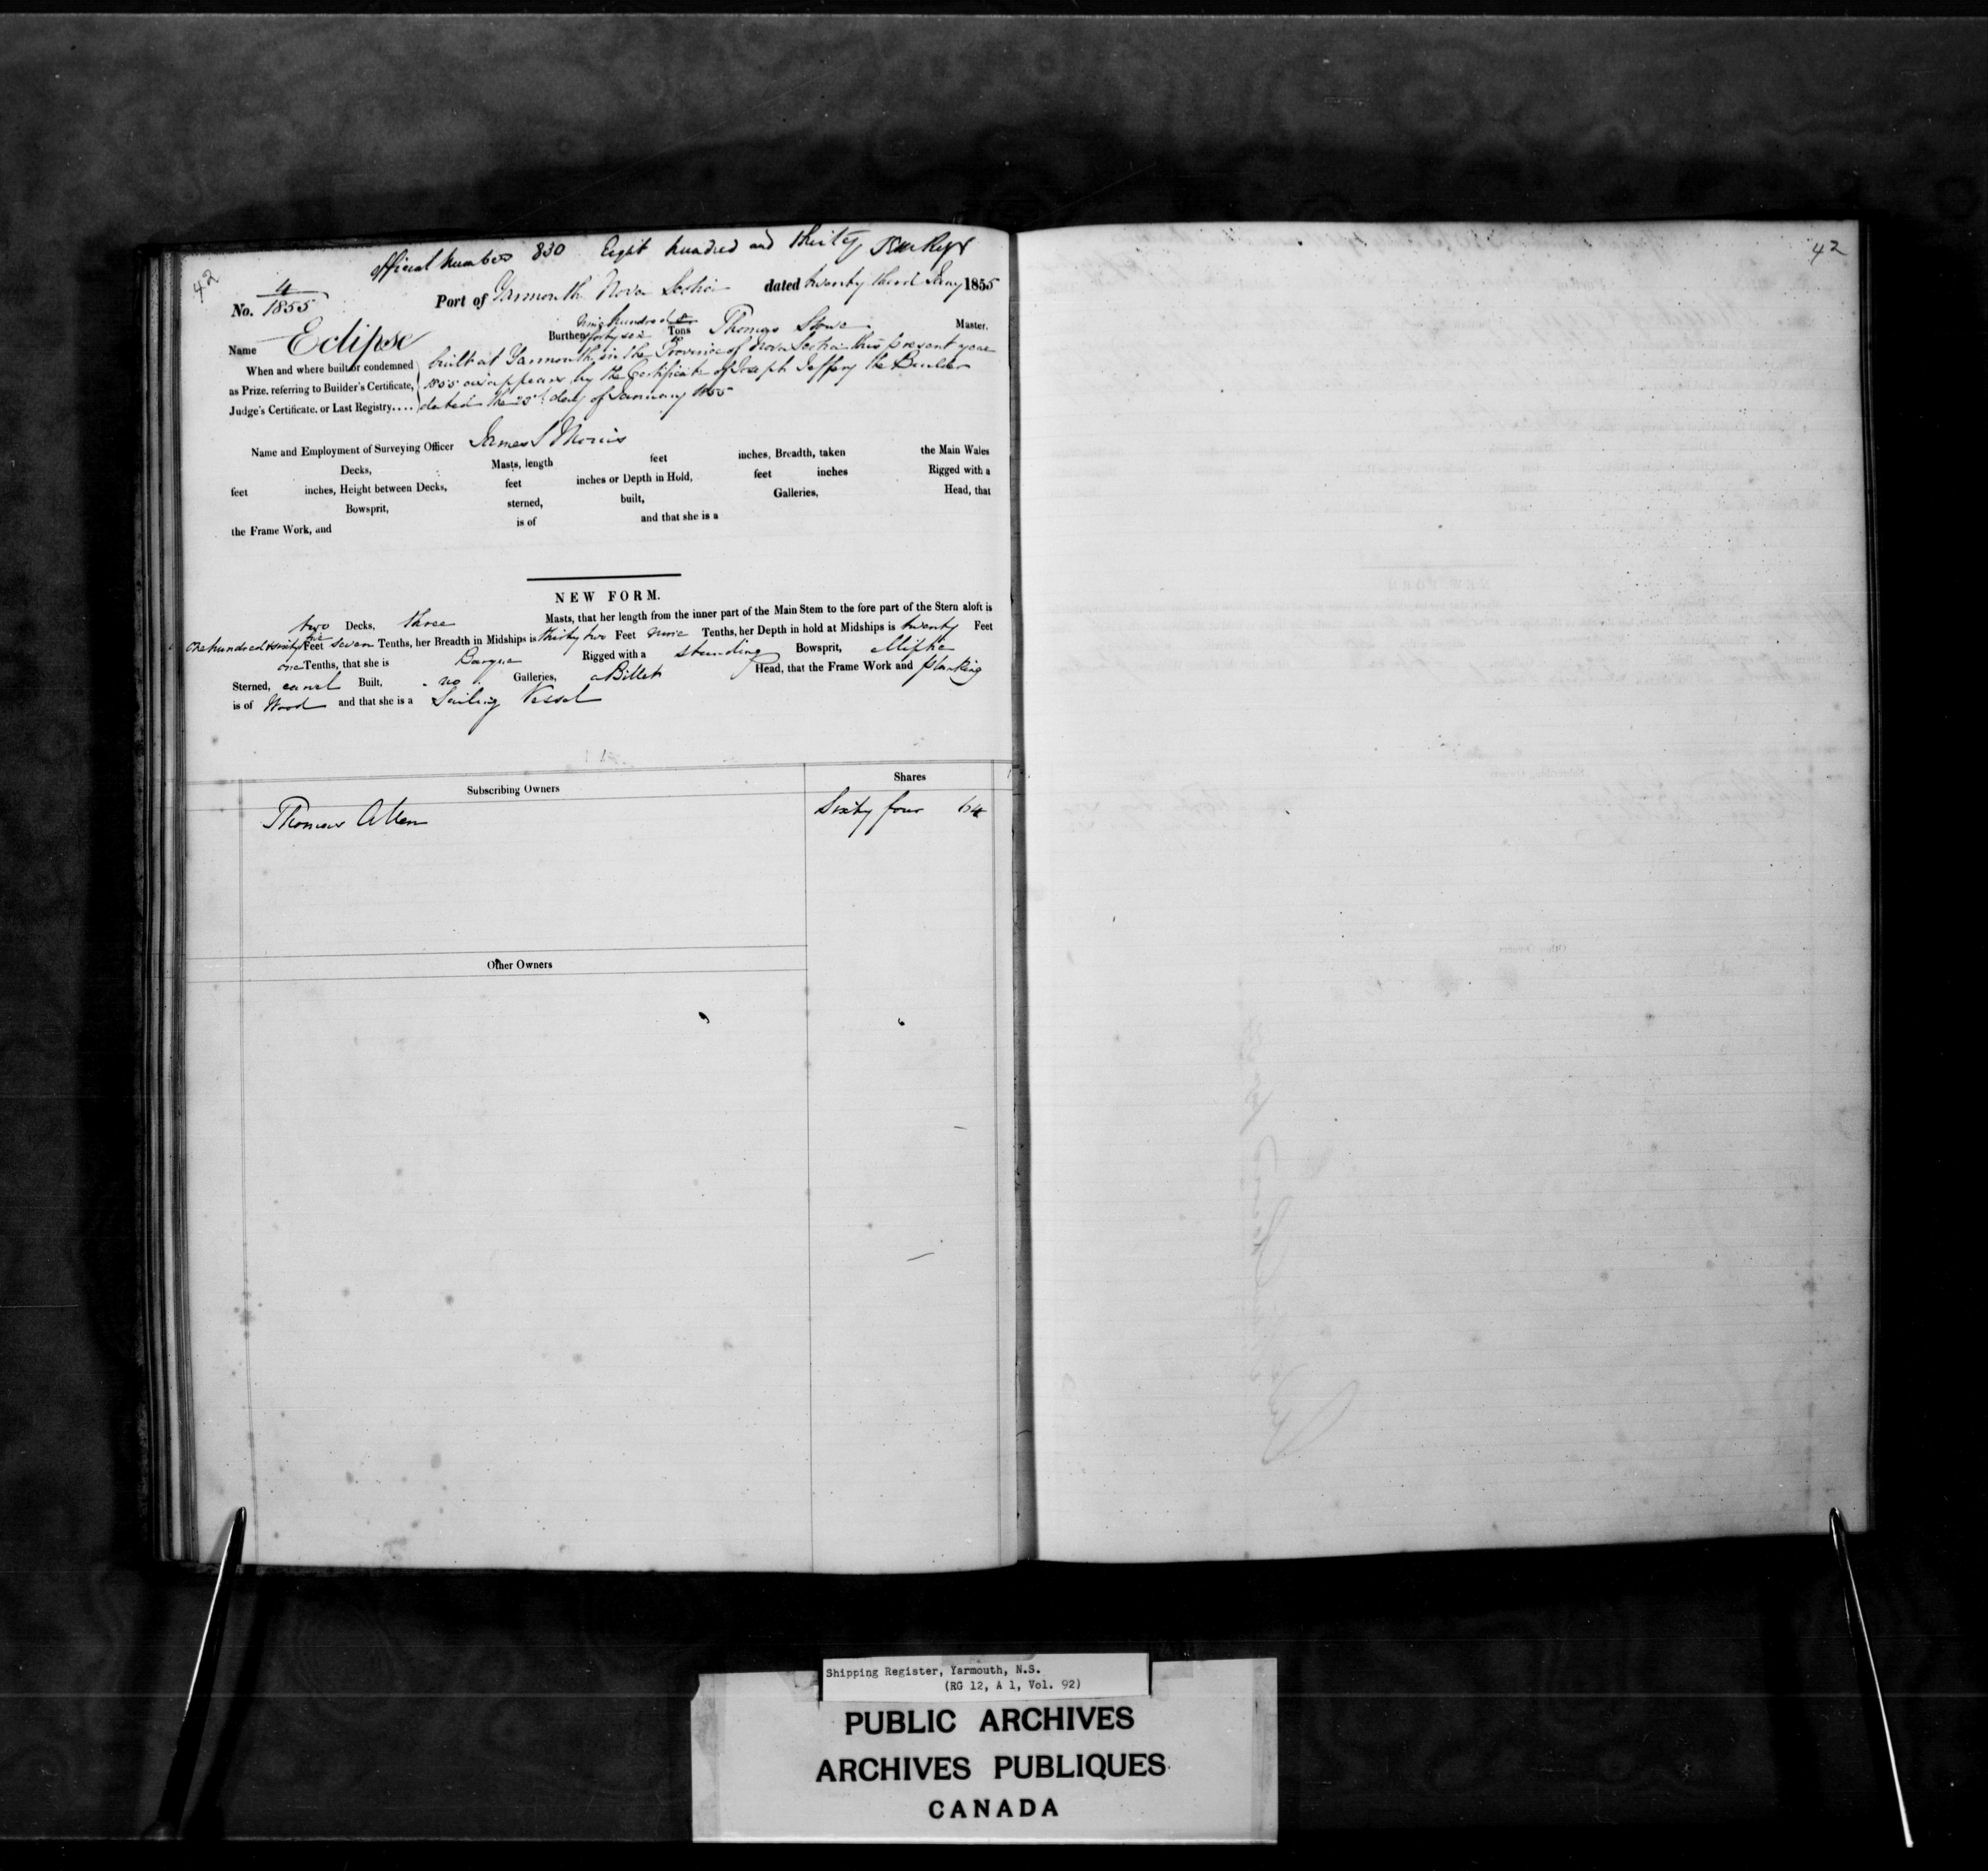 42
official number 830 Eight hundred and thirty
No. 4/1855 Port of Yarmouth Nova Scotia dated twenty third Jany 1855
Name Eclipse Burthen nine hundred & forty six Tons Thomas Stowe Master.
When and where built or condemned built at Yarmouth in the Province of Nova Scotia this present year
as Prize, referring to Builder's Certificate, 1855 as appears by the Certificate of Joseph Jeffery the Builder
Judge's Certificate, or Last Registry.... dated the day of January 1855
Name and Employment of Surveying Officer James S Morris
Decks, Masts, length feet inches, Breadth, taken the Main Wales
feet inches, Height between Decks, feet inches or Depth in Hold, feet inches Rigged with a
Bowsprit, sterned, built, Galleries, Head, that
the Frame Work, and is of and that she is a
NEW FORM.
two Decks, three Masts, that her length from the inner part of the Main Stem to the fore part of the Stern aloft is
One hundred & sixty five Feet seven Tenths, her Breadth in Midships is thirty two Feet nine Tenths, her Depth in hold at Midships is twenty Feet
one Tenths, that she is Barque Rigged with a standing Bowsprit,
Sterned, carvel Built, no Galleries, a Billet Head, that the Frame Work and planking
is of Wood and that she is a Sailing Vessel
Subscribing Owners Shares
Thomas Allen Sixty four 64
Other Owners
42
Shipping Register, Yarmouth, N.S.
(RG 12, A 1, Vol. 92)
PUBLIC ARCHIVES
ARCHIVES PUBLIQUES
CANADA